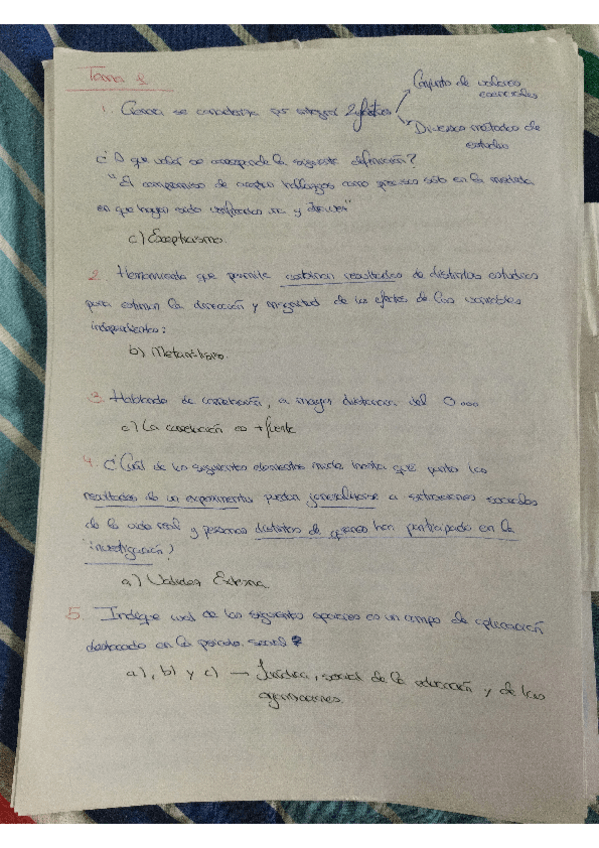 Tema 1
1. Ciencia se caracteriza por integrar 2 factores
Conjunto de valores
esenciales
Diversos métodos de
estudio
¿A que valor se corresponde la siguiente definición?
"El compromiso de nuestros hallazgos como precisos sólo en la medida
en que hayan sido verificados y
c) Escepticismo.
2. Herramienta que permite combinar resultados de distintos estudios
para estimar la dirección y magnitud de los efectos de las variables
independientes:
b) Metanálisis.
3. Hablando de correlación, a mayor distancia del 0...
c) La correlación es + fuerte
4. ¿Cuál de los siguientes elementos mide hasta qué punto los
resultados de un experimento pueden generalizarse a situaciones sociales
de la vida real y personas distintas de quienes han participado en la
investigación?
a) Validez Externa
5. Indique cual de las siguientes opciones es un campo de aplicación
destacado en la psicolo. social
a), b) y c) → Jurídica, social de la educación y de las
organizaciones.